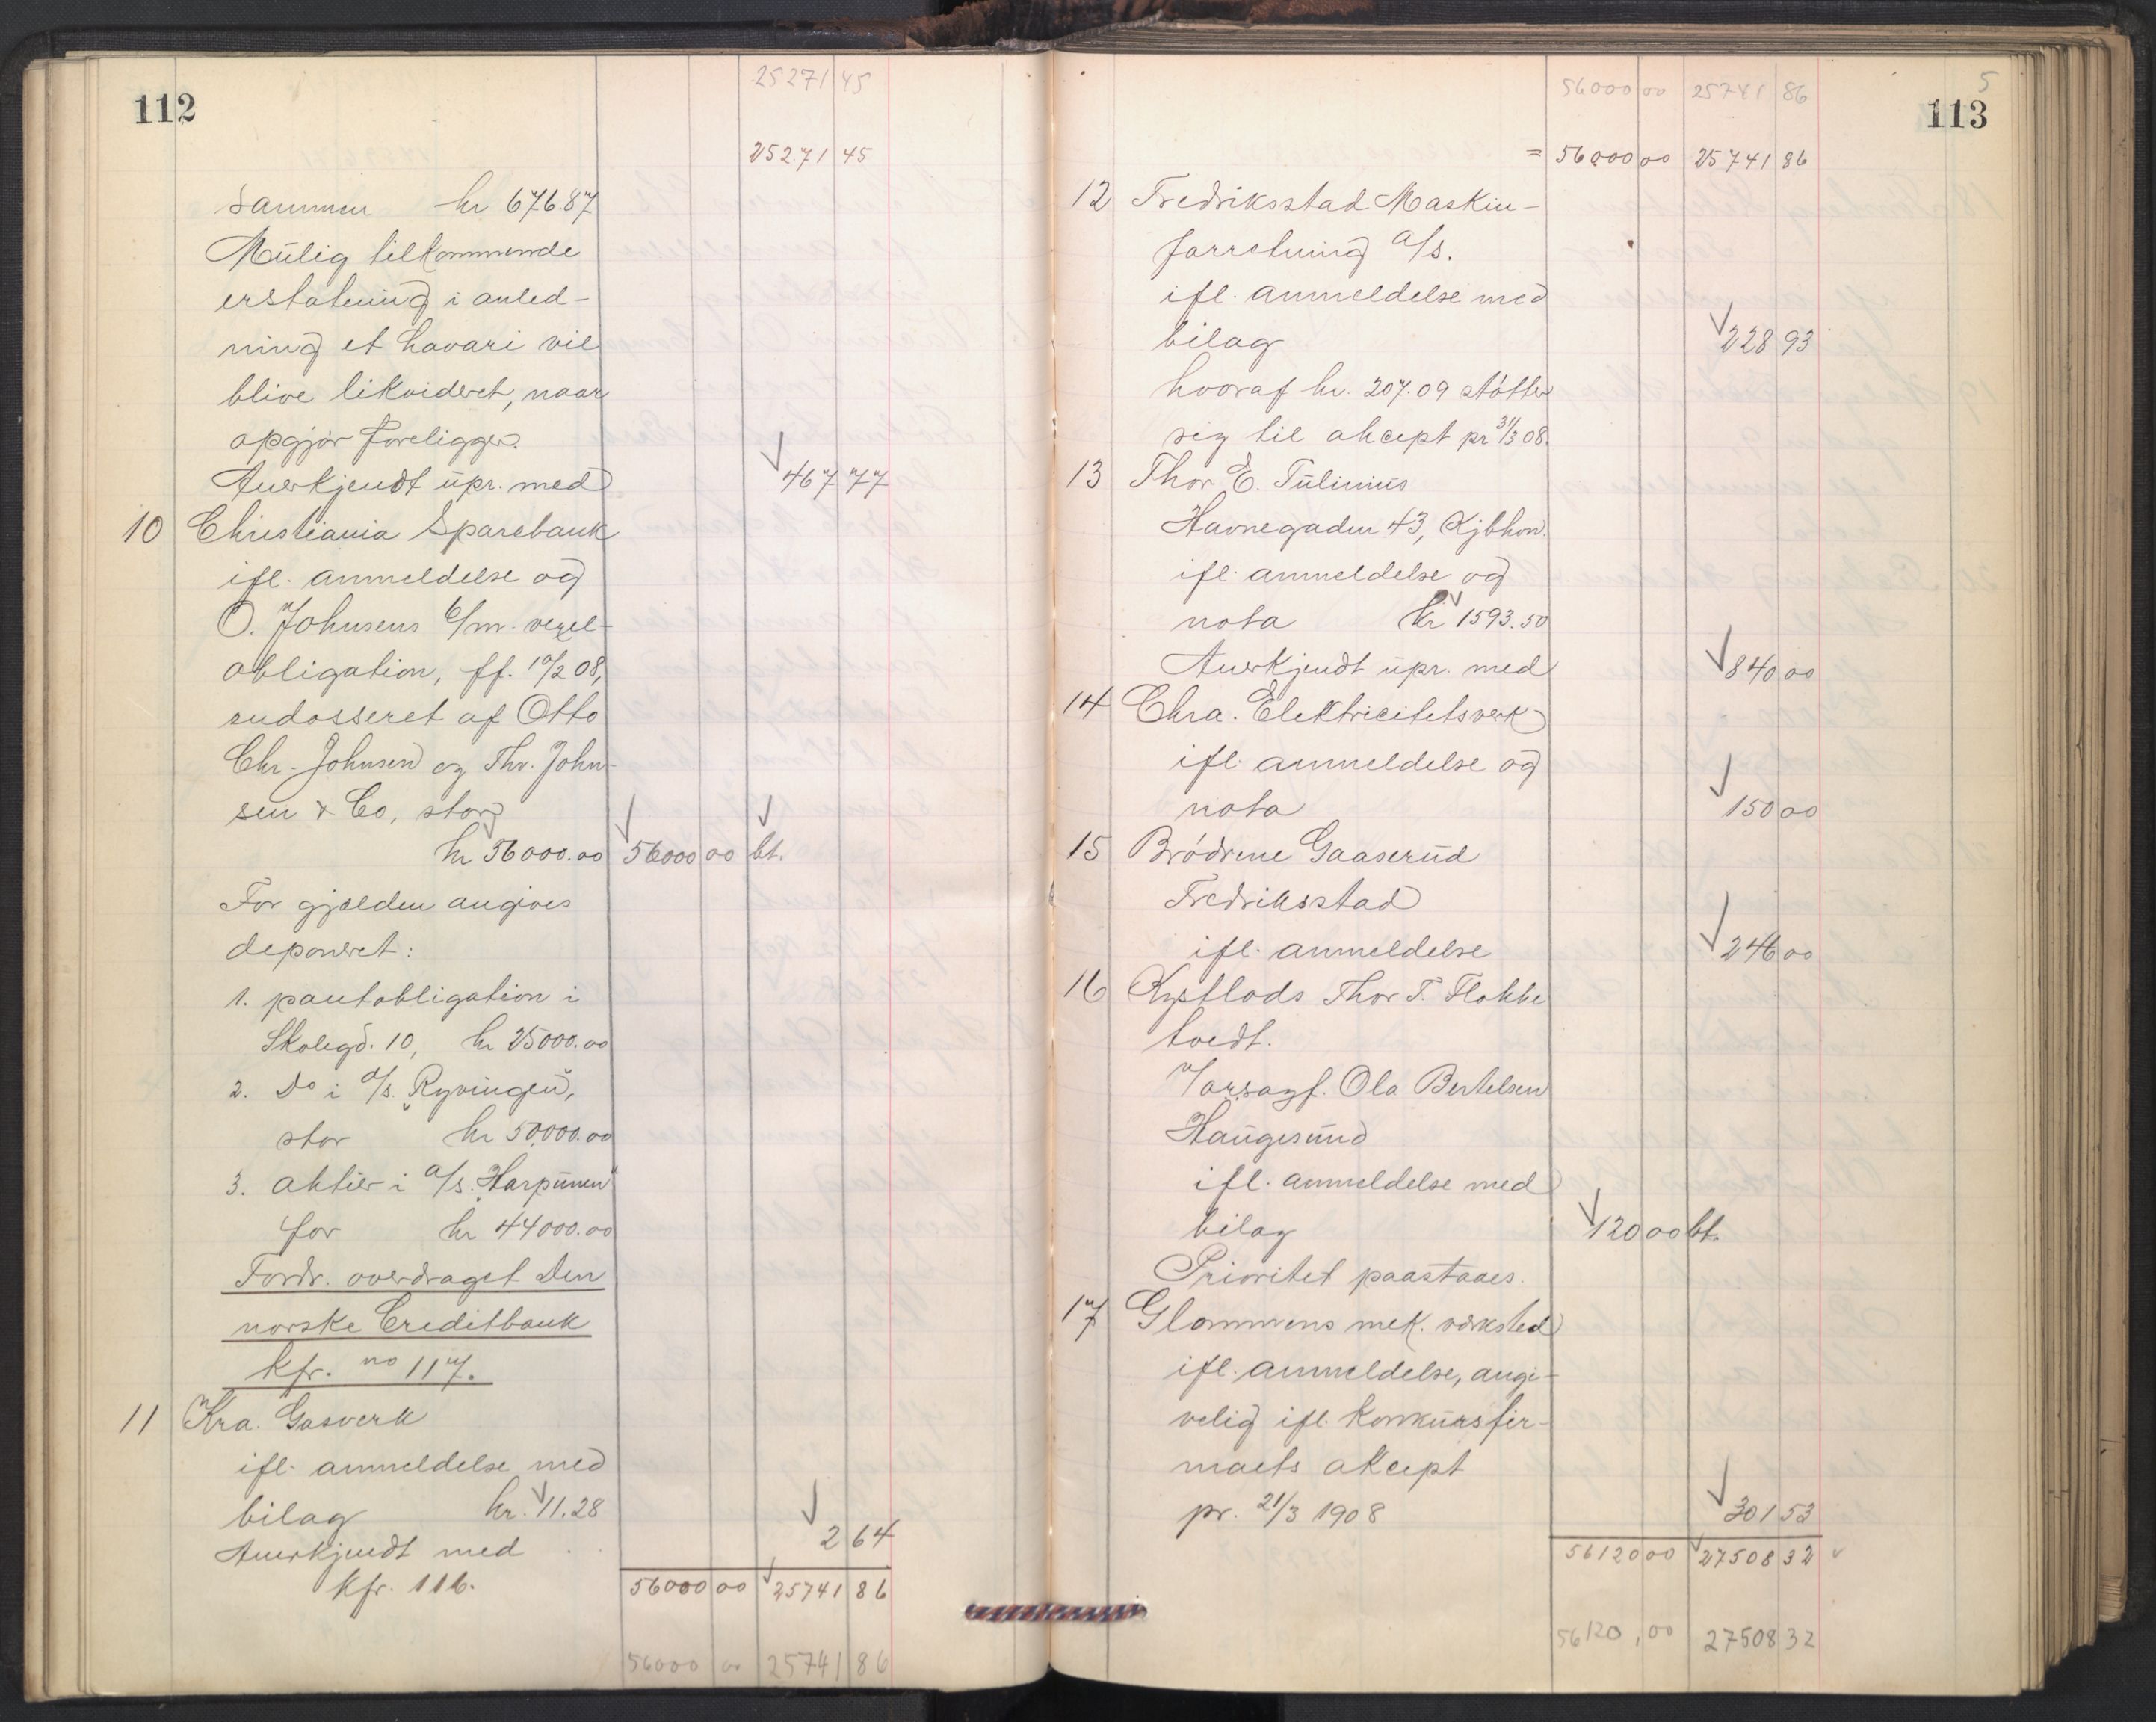 25271 45
112
25271 45
Sammen kr 676.87
Mulig tilkommende
erstatning i anled-
ning et havari vil
blive likvideret, naar
opgjør foreligger.
Anerkjendt upr. med 467 77
10 Christiania Sparebank
ifl. anmeldelse og
O. Johnsens 6/m. vexel-
obligation, ff. 10/2 08,
endosseret af Otto
Chr. Johnsen og Thv. John-
sen & Co, stor
kr 56000.00 56000 00 bt.
For gjælden angives
deponeret:
1. pantobligation i
Skolegd. 10, kr 25000.00
2. Do i a/s. "Ryvingen",
stor kr 50.000.00
3. aktier i a/s. "Harpunen"
for kr 44000.00
Fordr. overdraget Den
norske Creditbank
kfr. no 117.
11 Kra. Gasverk
ifl. anmeldelse med
bilag kr. 11.28
Anerkjendt med 2 64
kfr. 116.
56000 00 25741 86
56000 00 25741 86
56000 00 25741 86 5
113
= 56000 00 25741 86
12 Fredriksstad Maskin-
forretning a/s.
ifl. anmeldelse med
bilag 228 93
hvoraf kr. 207.09 støtter
sig til akcept pr 31/3 08.
13 Thor E. Tulinius
Havnegaden 43, Kjbhvn.
ifl. anmeldelse og
nota kr 1593.50
Anerkjendt upr. med 840 00
14 Chra. Elektricitetsverk
ifl. anmeldelse og
nota 150 00
15 Brødrene Gaaserud
Fredriksstad
ifl. anmeldelse 246 00
16 Kystlods Thor T. Flokke
tvedt.
v/orsagf. Ola Bertelsen
Haugesund
ifl. anmeldelse med
bilag 120 00 bt.
Prioritet paastaaes.
17 Glommens mek. værksted
ifl. anmeldelse, angi-
velig ifl. konkursfir-
maets akcept
pr. 21/3 1908 301 53
56120 00 27508 32
56120,00 27508 32